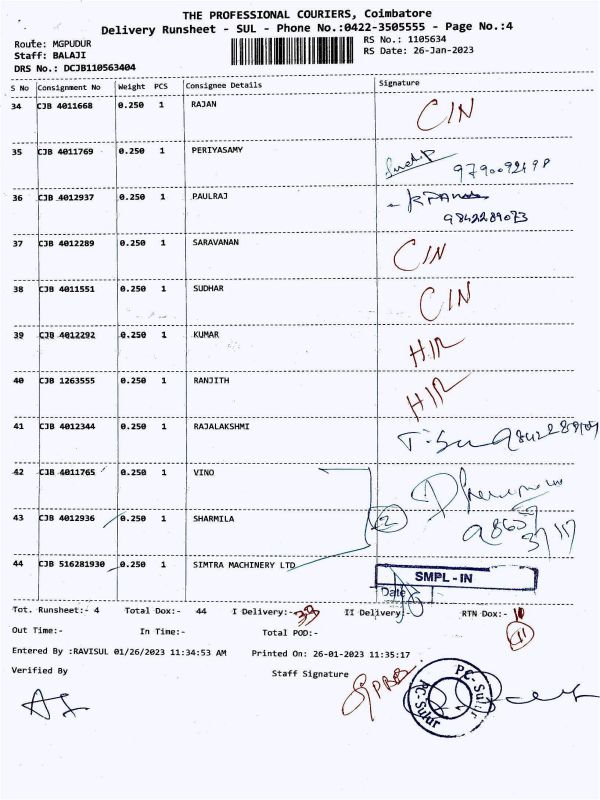 THE PROFESSIONAL COURIERS, Coimbatore
Delivery Runsheet - SUL - Phone No.:0422-3505555 - Page No.:4
Route: MGPUDUR
RS No.: 1105634
Staff: BALAJI
RS Date: 26-Jan-2023
DRS No.: DCJB110563404
S No Consignment No Weight PCS Consignee Details Signature
34 CJB 4011668 0.250 1 RAJAN CIN
35 CJB 4011769 0.250 1 PERIYASAMY
36 CJB 4012937 0.250 1 PAULRAJ
9842289073
37 CJB 4012289 0.250 1 SARAVANAN CIN
38 CJB 4011551 0.250 1 SUDHAR CIN
39 CJB 4012292 0.250 1 KUMAR
40 CJB 1263555 0.250 1 RANJITH
41 CJB 4012344 0.250 1 RAJALAKSHMI
42 CJB 4011765 0.250 1 VINO
43 CJB 4012936 0.250 1 SHARMILA 2
44 CJB 516281930 0.250 1 SIMTRA MACHINERY LTD SMPL - IN
Date
Tot. Runsheet:- 4 Total Dox:- 44 I Delivery:- 33 II Delivery:- RTN Dox:- 11
11
Out Time:- In Time:- Total POD:-
Entered By :RAVISUL 01/26/2023 11:34:53 AM Printed On: 26-01-2023 11:35:17
Verified By Staff Signature
PC-Sulur
PC-Sulur